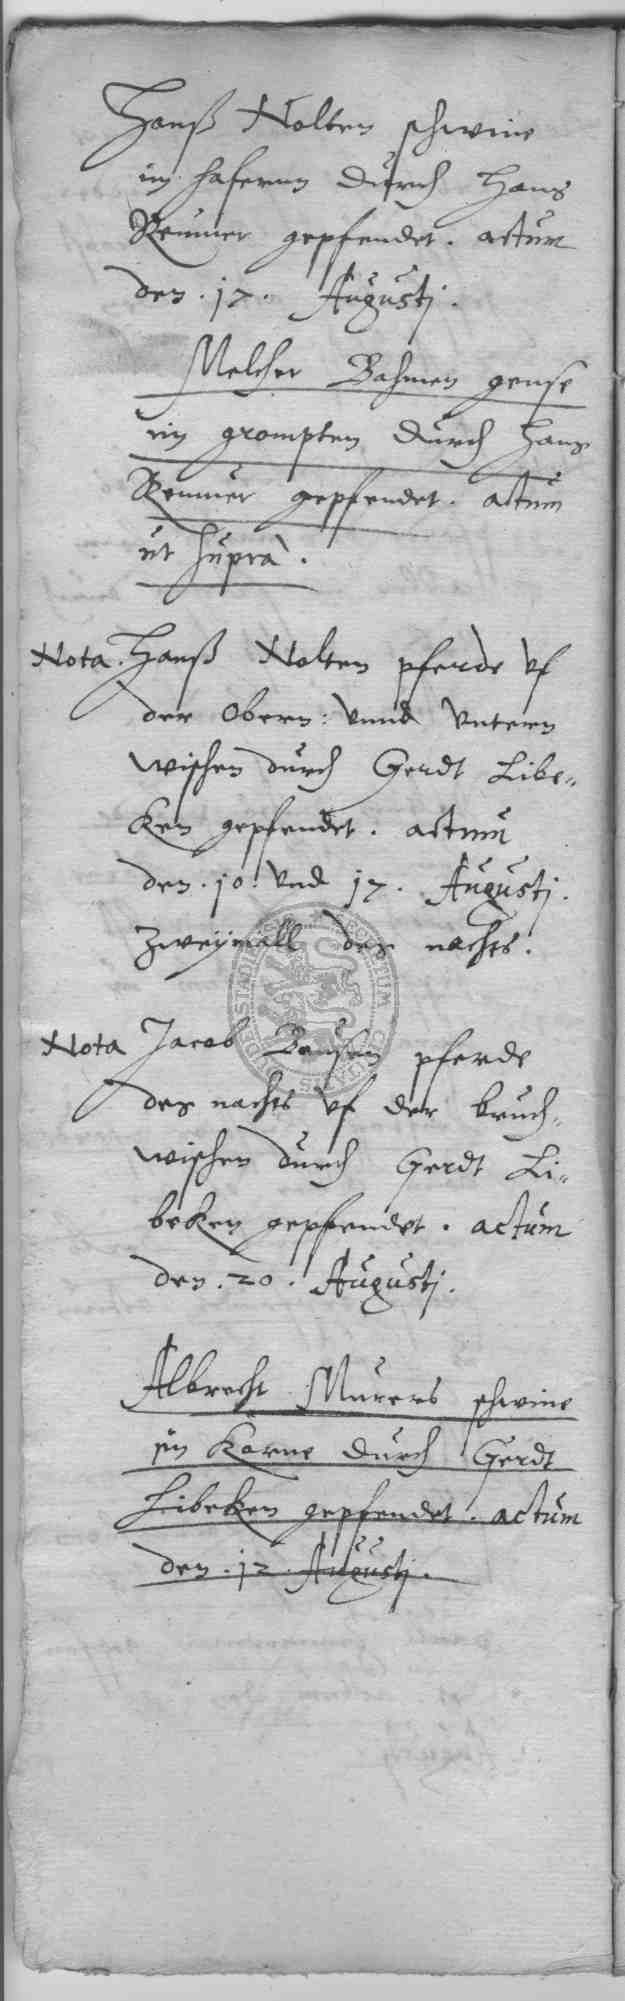 Hanß Nolten schweine
im haferen durch Hans
Remmer gepfendet. actum
den. 17. Augustj.
Melcher Bahmen gense
im grompten durch Hans
Remmer gepfendet. actum
ut supra.
Nota. Hanß Nolten pferde vf
der Obern: vnnd Vntern
wischen durch Gerdt Libe-
ken gepfendet. actum
den. 10. vnd 17. Augustj.
zweymall des nachts.
Nota Jacob pferde
des nachts vf der bruch-
wischen durch Gerdt Li-
beken gepfendet. actum
den. 20. Augustj.
Albrecht Murers schweine
im Korne durch Gerdt
Libeken gepfendet. actum
den. 12. Augustj.